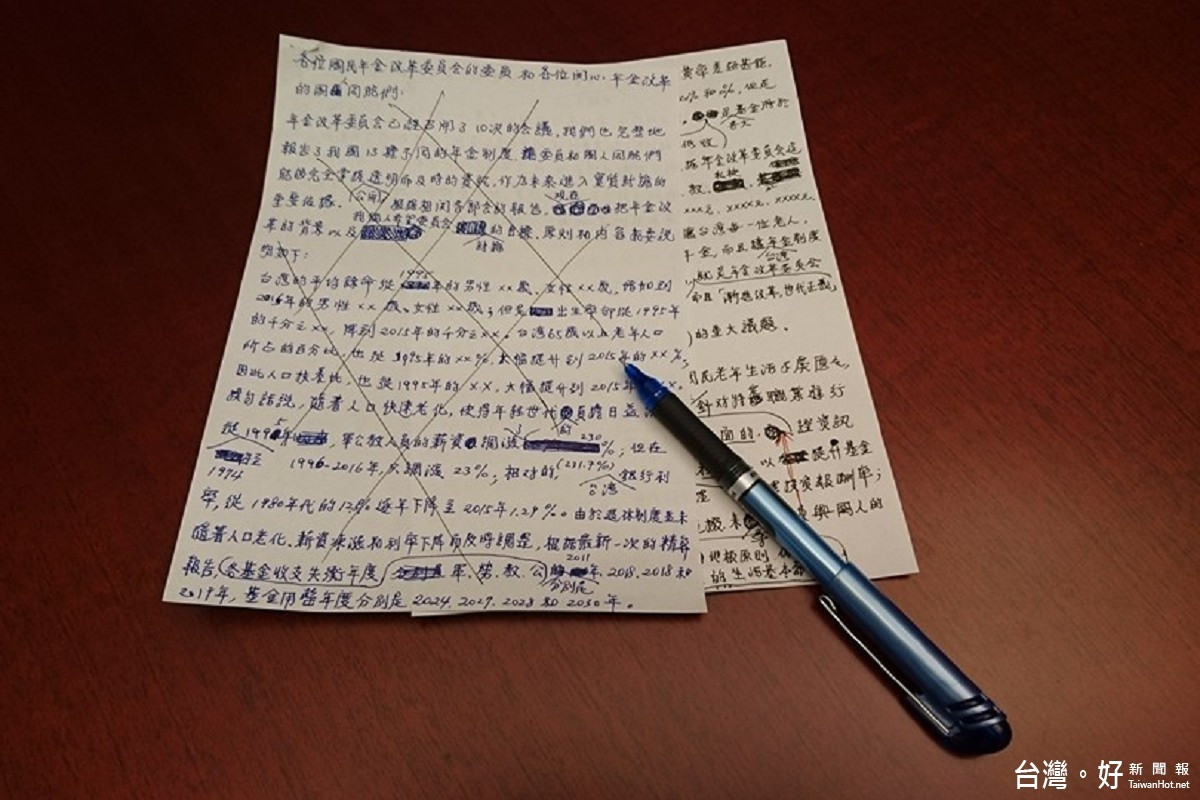 各位國民年金改革委員會的委員和各位關心年金改革
的國人同胞們:
年金改革委員會已經召開了10次的會議,我們也完整地
報告了我國13種不同的年金制度,讓委員和國人同胞們
能夠完全掌握透明而及時的資訊,作為未來進入實質討論的
重要依據。(公開)
各部會的報告,現在把年金改
革的背景以及我個人希望委員會討論的目標、原則和內容重要說
明如下:
台灣的平均餘命從1995年的男性xx歲、女性xx歲,增加到
2016年的男性xx歲、女性xx歲;但是出生率卻從1995年
的千分之xx,降到2015年的千分之xx。台灣65歲以上老年人口
所占的百分比,也從1995年的xx%,大幅提升到2015年的xx%,
因此人口扶養比,也從1995年的xx,大幅提升到2015年
換句話說,隨著人口快速老化,使得年輕世代的負擔日益
從1995年,軍公教人員的薪資調漲230%;但在
1974
1996-2016年,只調漲23%,相對的,(231.9%)台灣銀行利
率,從1980年代的12.5%逐年下降至2015年1.29%。由於退休制度並未
隨著人口老化、薪資凍漲和利率下降而及時調整,根據最新一次的精算
報告,各基金收支失衡年度,軍、勞、教、公分別是2011年、2018、2018和
2019年,基金用罄年度分別是2024、2027、2028和2030年。
和0%,但在
是基金所於
低收)
據年金改革委員會這
教、私校
xxx元、xxxx元、xxxx元
讓台灣每一位老人,
年金,而且讓台灣年金制度
以就是年金改革委員會
而且「漸進改革,世代正義」
)的重大議題。
國民老年生活不虞匱乏,
針對特殊職業進行
面的、從資訊
以提升基金
投資報酬率;
與國人的
)地板原則
的生活基本
台灣。好 新聞報
TaiwanHot.net